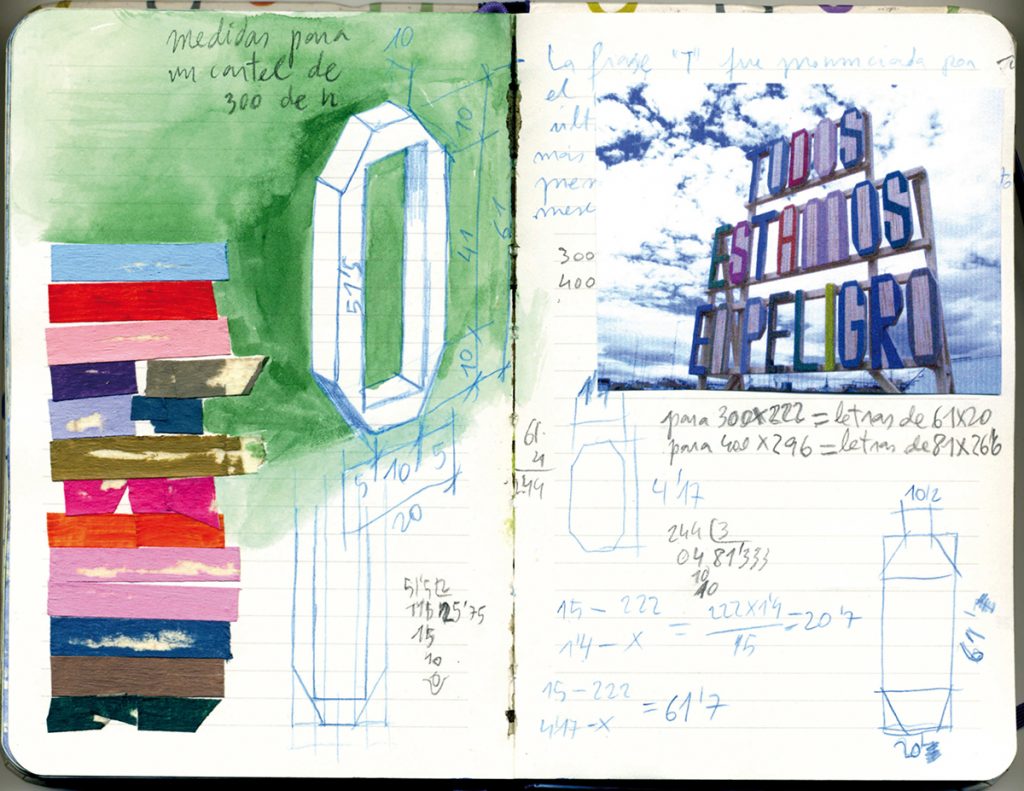 medidas para
un cartel de
300 de h
10
10
41
61
51'5
10
5
10
5
20
51'5 2
15
10
0
La frase "T" fue pronunciada por
el
últ
más
300
400
TODOS
ESTAMOS
EN PELIGRO
para 300x222 = letras de 61x20
para 400x296 = letras de 81x26'6
61
4
244
4'17
244 3
04 81'333
10
10
15 - 222
1'4 - x
= 222x1'4 = 20'7
15
15 - 222
4'17 - x
= 61'7
10'2
61'
20'